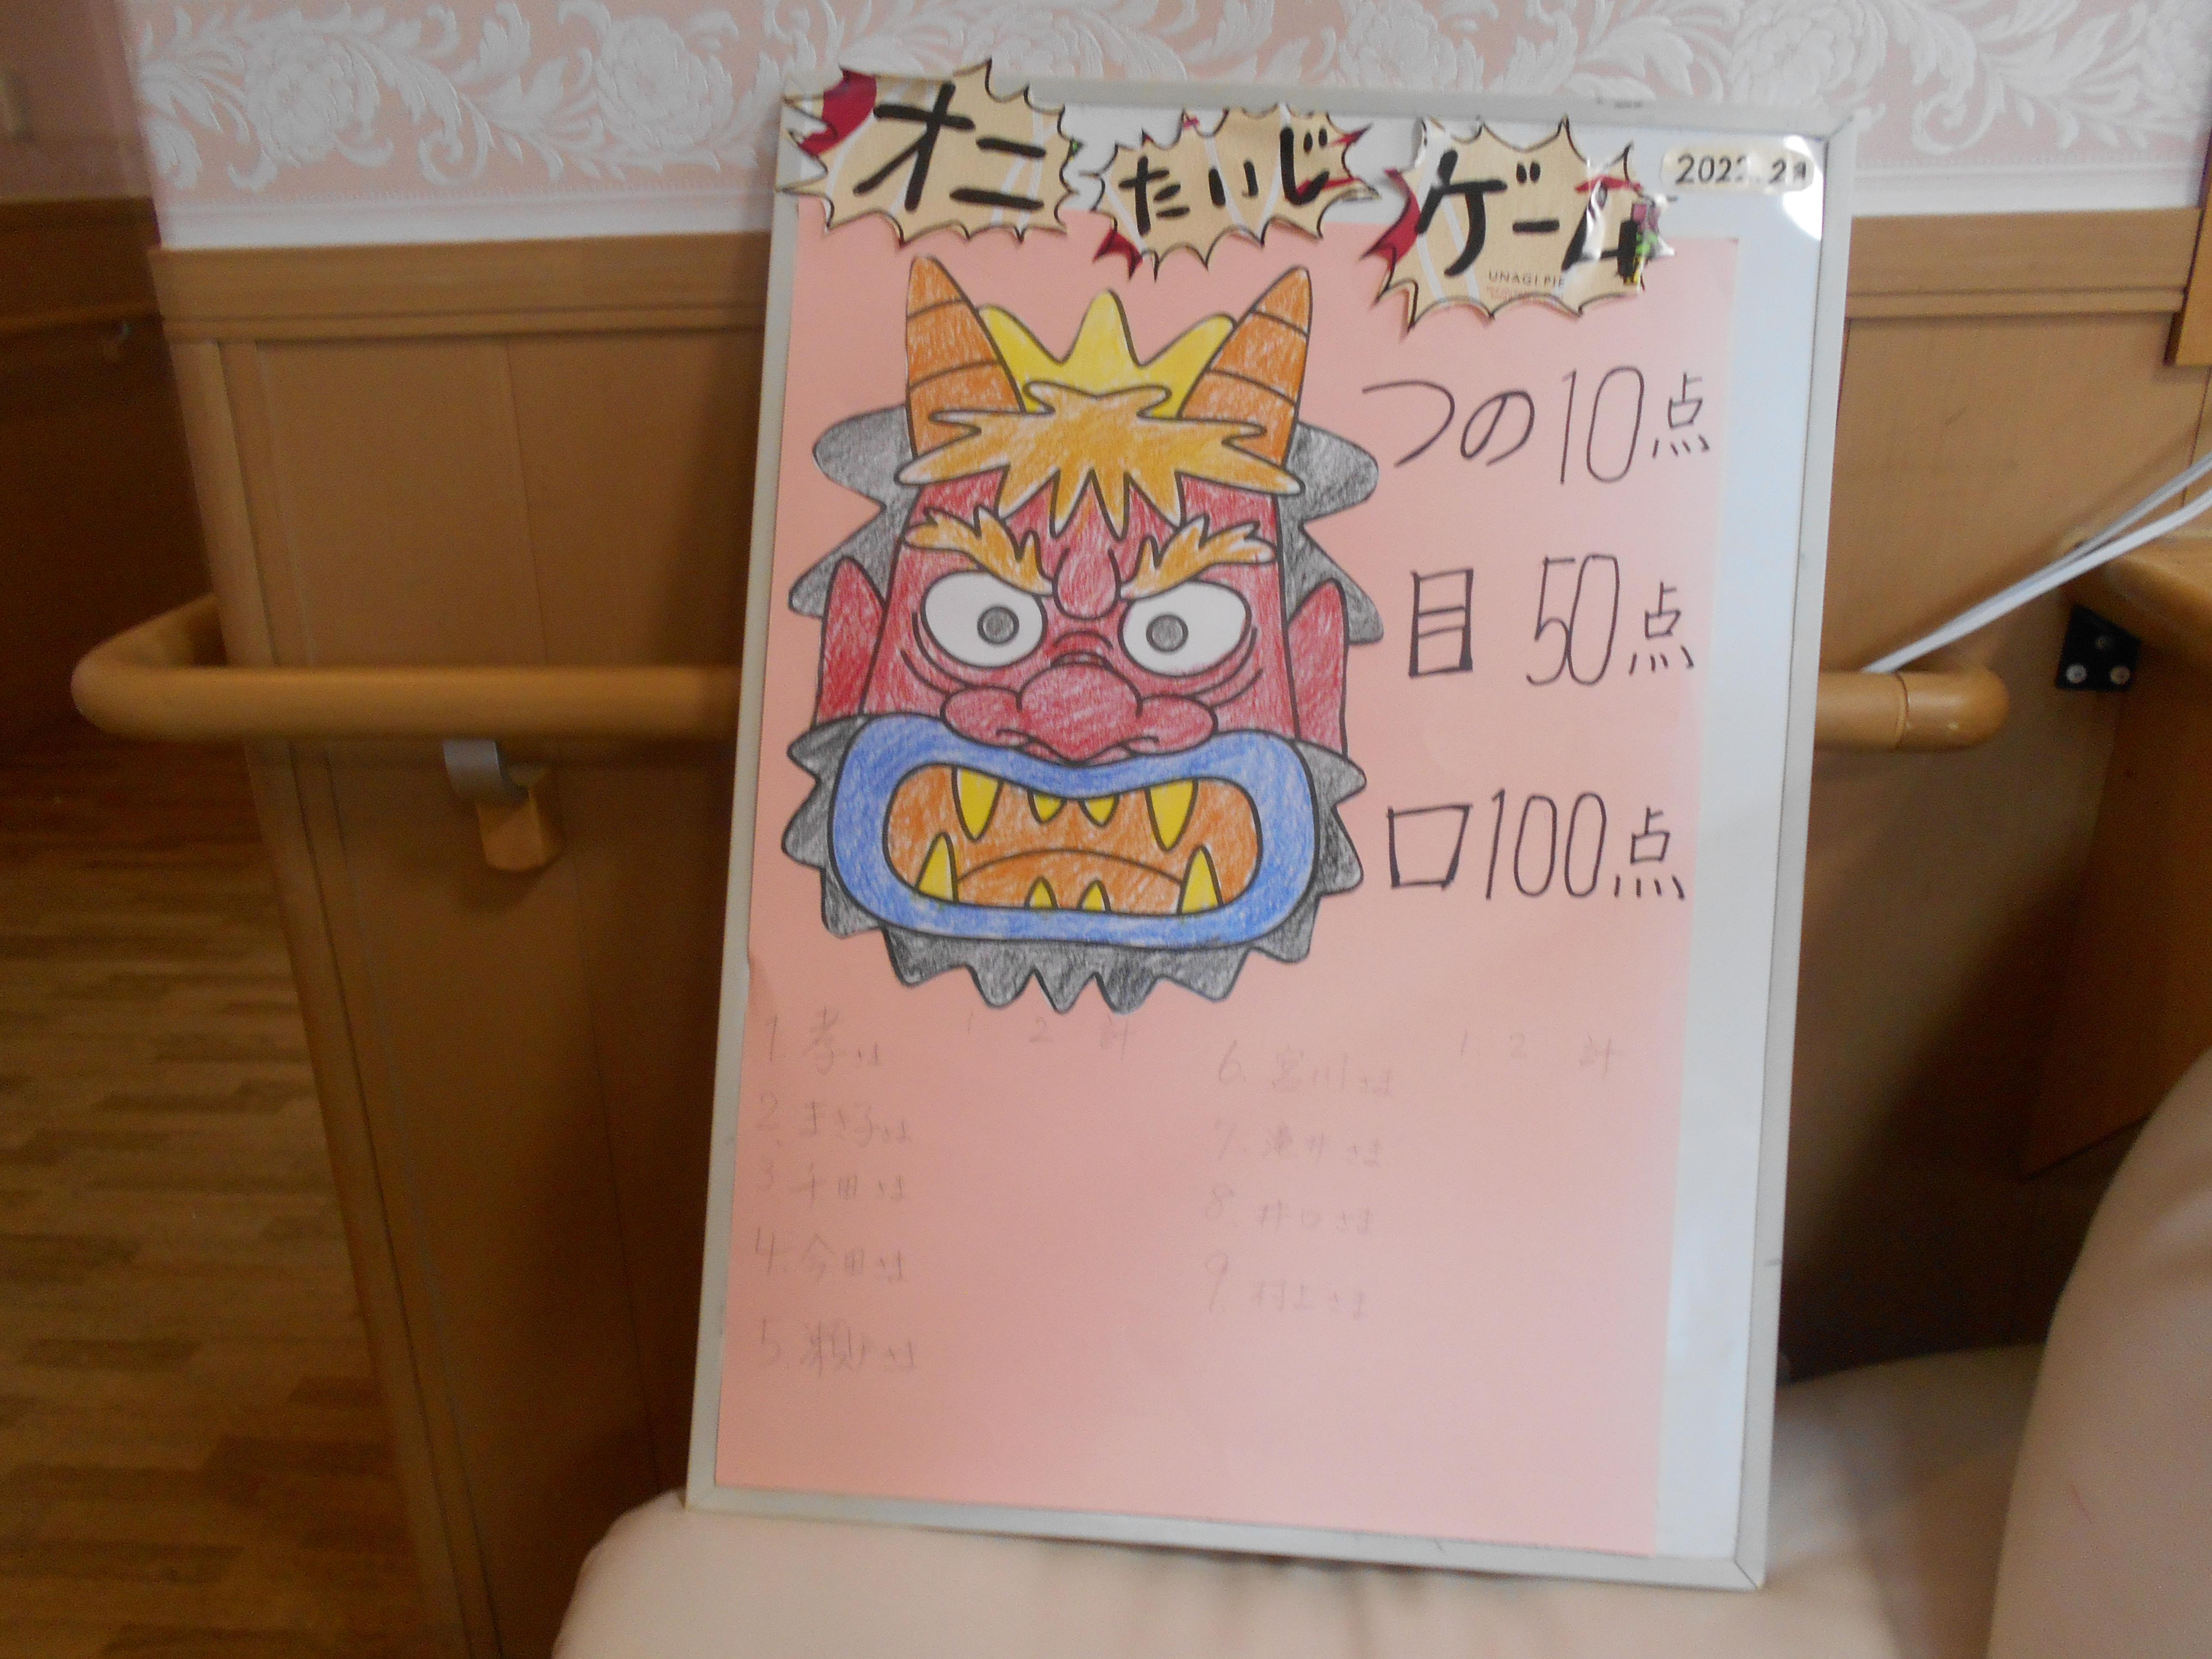 オニ たいじ ゲーム
2022.2月
UNAGI PIE
つの10点
目 50点
口100点
1 2 計
1. 孝さま
2. まさ子さま
3 千田さま
4. 今田さま
5. 瀬戸さま
1. 2 計
6. 宮川さま
7. 滝井さま
8. 井口さま
9. 村上さま